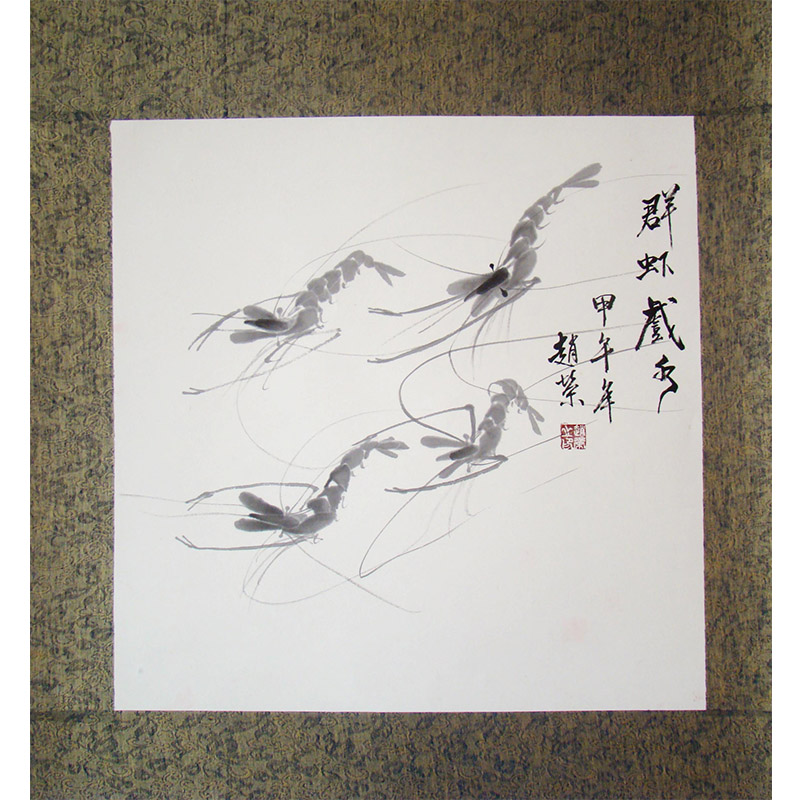 群虾戲水
甲午年
趙榮